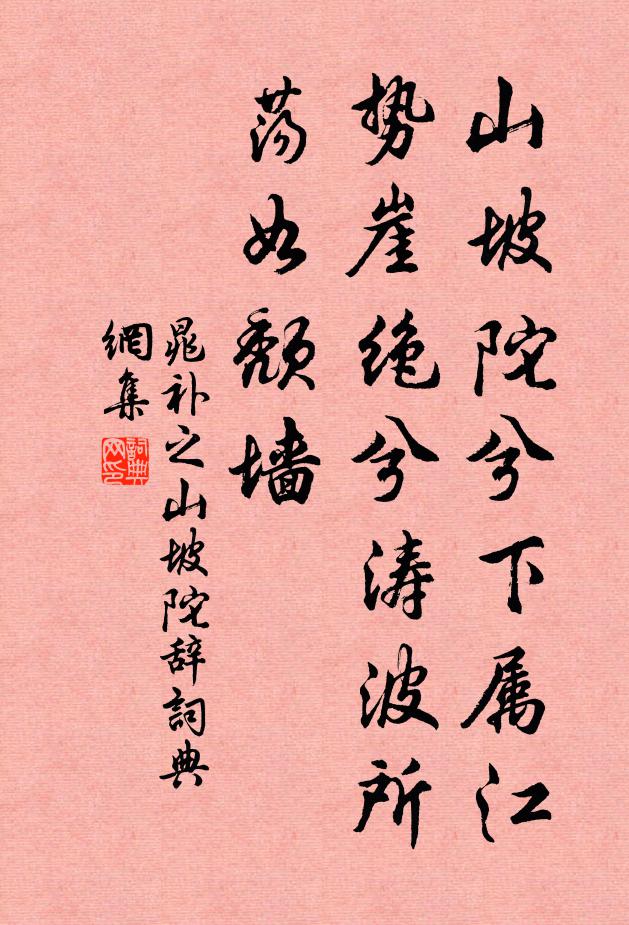 山坡陀兮下属江
势崖绝兮涛波所
荡如颓墙
晁补之山坡陀辞詞典
網集
詞典网印